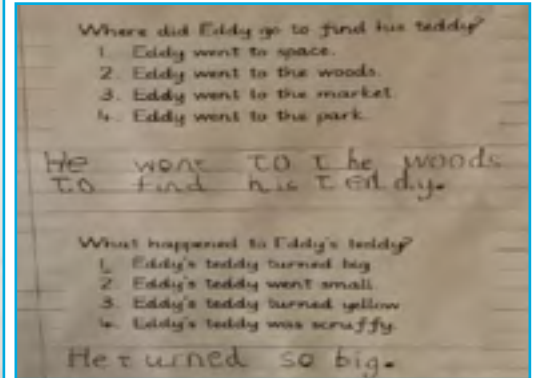 Where did Eddy go to find his teddy?
1. Eddy went to space.
2. Eddy went to the woods.
3. Eddy went to the market.
4. Eddy went to the park.
He went to the woods
to find his teddy.
What happened to Eddy's teddy?
1. Eddy's teddy turned big
2. Eddy's teddy went small.
3. Eddy's teddy turned yellow
4. Eddy's teddy was scruffy.
He turned so big.